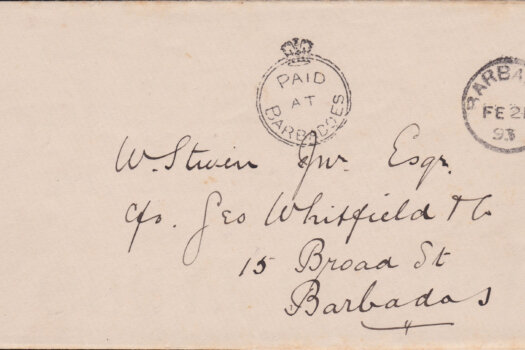 PAID
AT
BARBADOES
BARBA
FE 21
93
W. Jnr. Esqr.
c/o. Geo Whitfield & Co
15 Broad St
Barbados